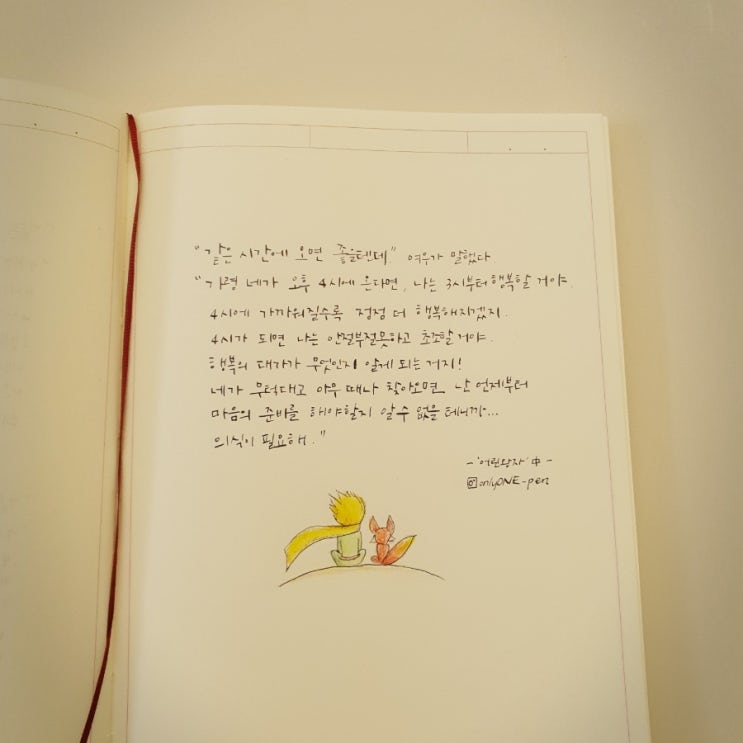 "같은 시간에 오면 좋을텐데" 여우가 말했다
"가령 네가 오후 4시에 온다면, 나는 3시부터 행복할 거야.
4시에 가까워질수록 점점 더 행복해지겠지.
4시가 되면 나는 안절부절못하고 초조할 거야.
행복의 대가가 무엇인지 알게 되는 거지!
네가 무턱대고 아무 때나 찾아오면 난 언제부터
마음의 준비를 해야할지 알 수 없을 테니까...
의식이 필요해."
- '어린왕자' 中 -
onlyONE-pen